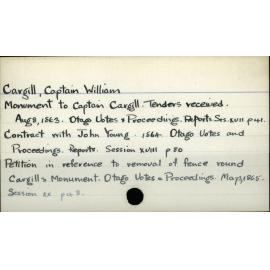 Cargill, Captain William
Monument to Captain Cargill. Tenders received.
Aug 8, 1863. Otago Votes & Proceedings. Reports Ses. XVII p 41.
Contract with John Young. 1864. Otago Votes and
Proceedings. Reports. Session XVIII p 80
Petition in reference to removal of fence round
Cargill's Monument. Otago Votes & Proceedings. May 3, 1865.
Session XX p 43.